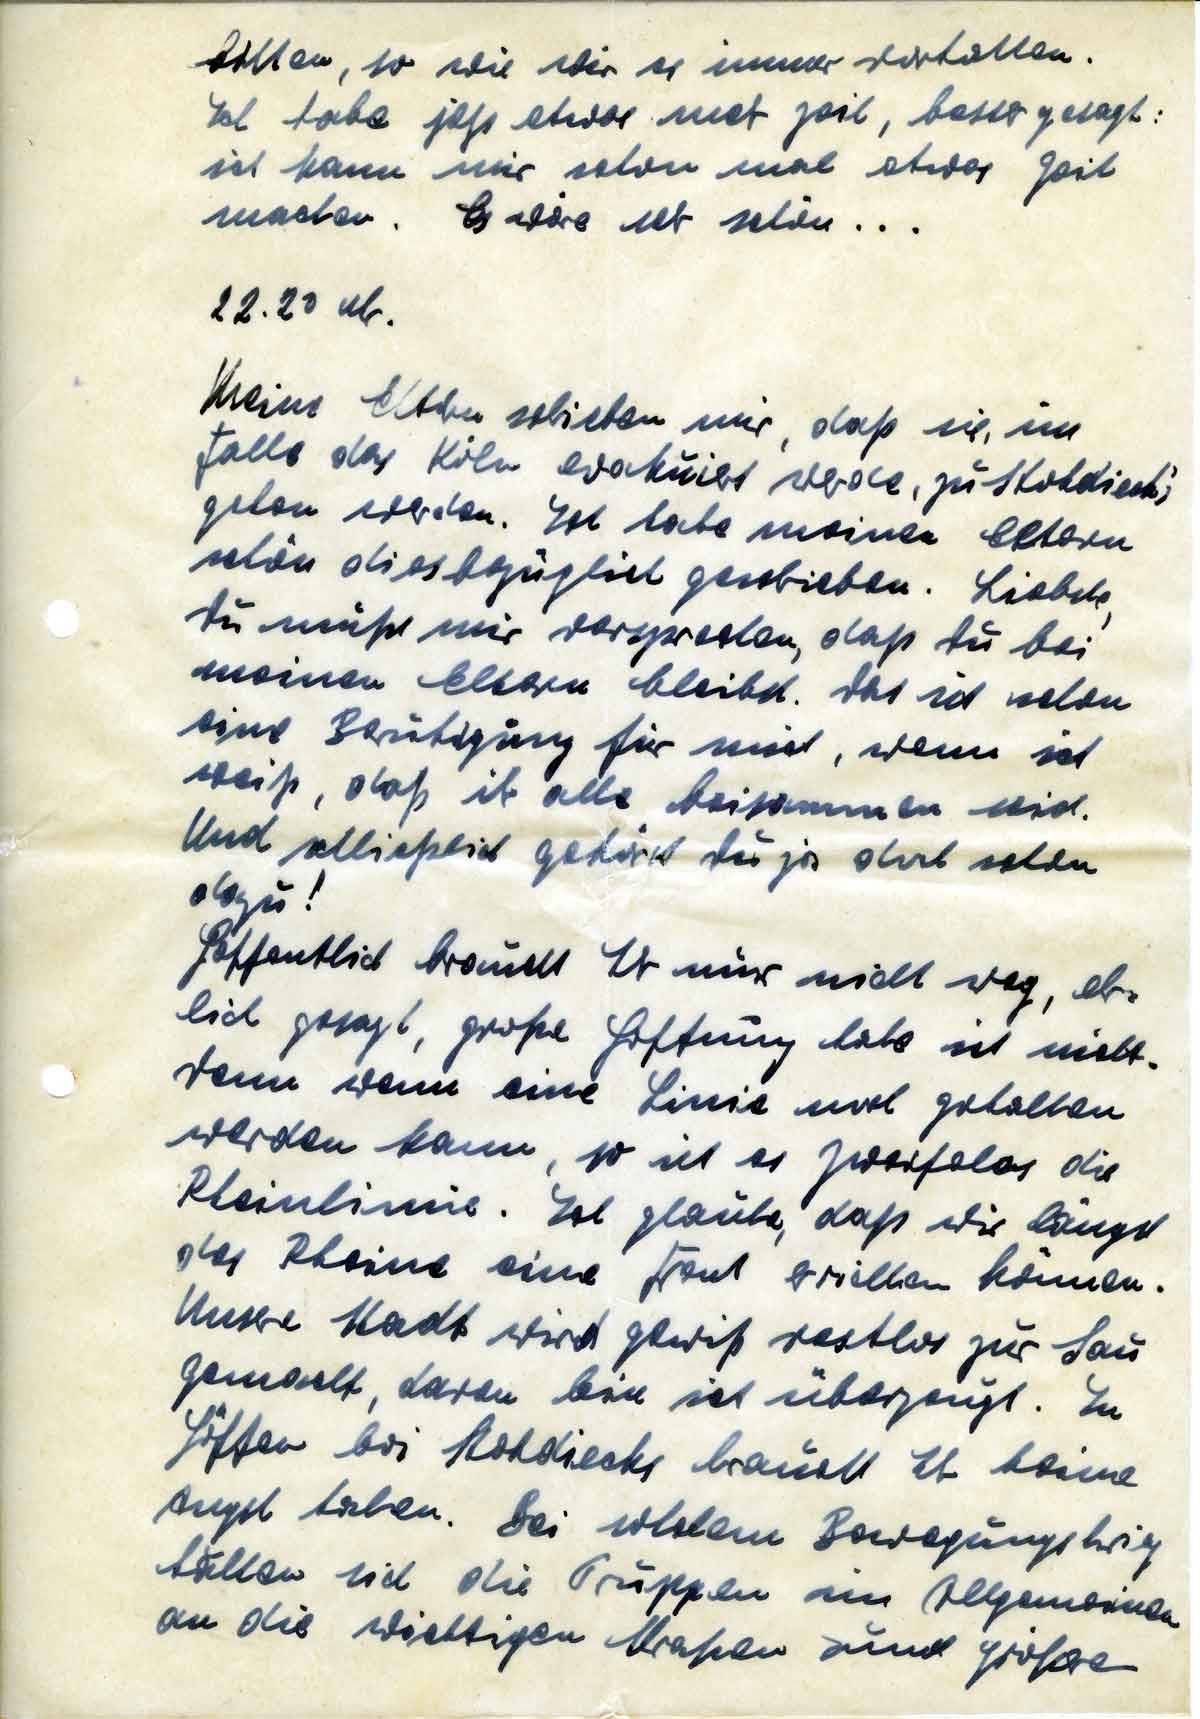 hätten, so wie wir es immer vorhatten.
Ich habe jetzt etwas mehr Zeit, besser gesagt:
ich kann mir schon mal etwas Zeit
machen. Es wäre sehr schön...
22.20 Uhr.
Meine Eltern schrieben mir, daß sie, im
Falle das Köln evakuiert werde, zu Stohdieck's
gehen werden. Ich habe meinen Eltern
schon diesbezüglich geschrieben. Liebste,
Du mußt mir versprechen, daß Du bei
meinen Eltern bleibst. Das ist schon
eine Beruhigung für mich, wenn ich
weiß, daß ihr alle beisammen seid.
Und schließlich gehörst Du ja doch schon
dazu!
Hoffentlich braucht Ihr nur nicht weg, ehr-
lich gesagt, große Hoffnung habe ich nicht.
Denn wenn eine Linie noch gehalten
werden kann, so ist es zweifelos die
Rheinlinie. Ich glaube, daß wir längst
des Rheins eine Front errichten können.
Unsere Stadt wird gewiß restlos zur Sau
gemacht, davon bin ich überzeugt. In
bei Stohdiecks braucht Ihr keine
Angst haben. Bei solchem Bewegungskrieg
halten sich die Truppen im Allgemeinen
an die wichtigen Straßen und größere